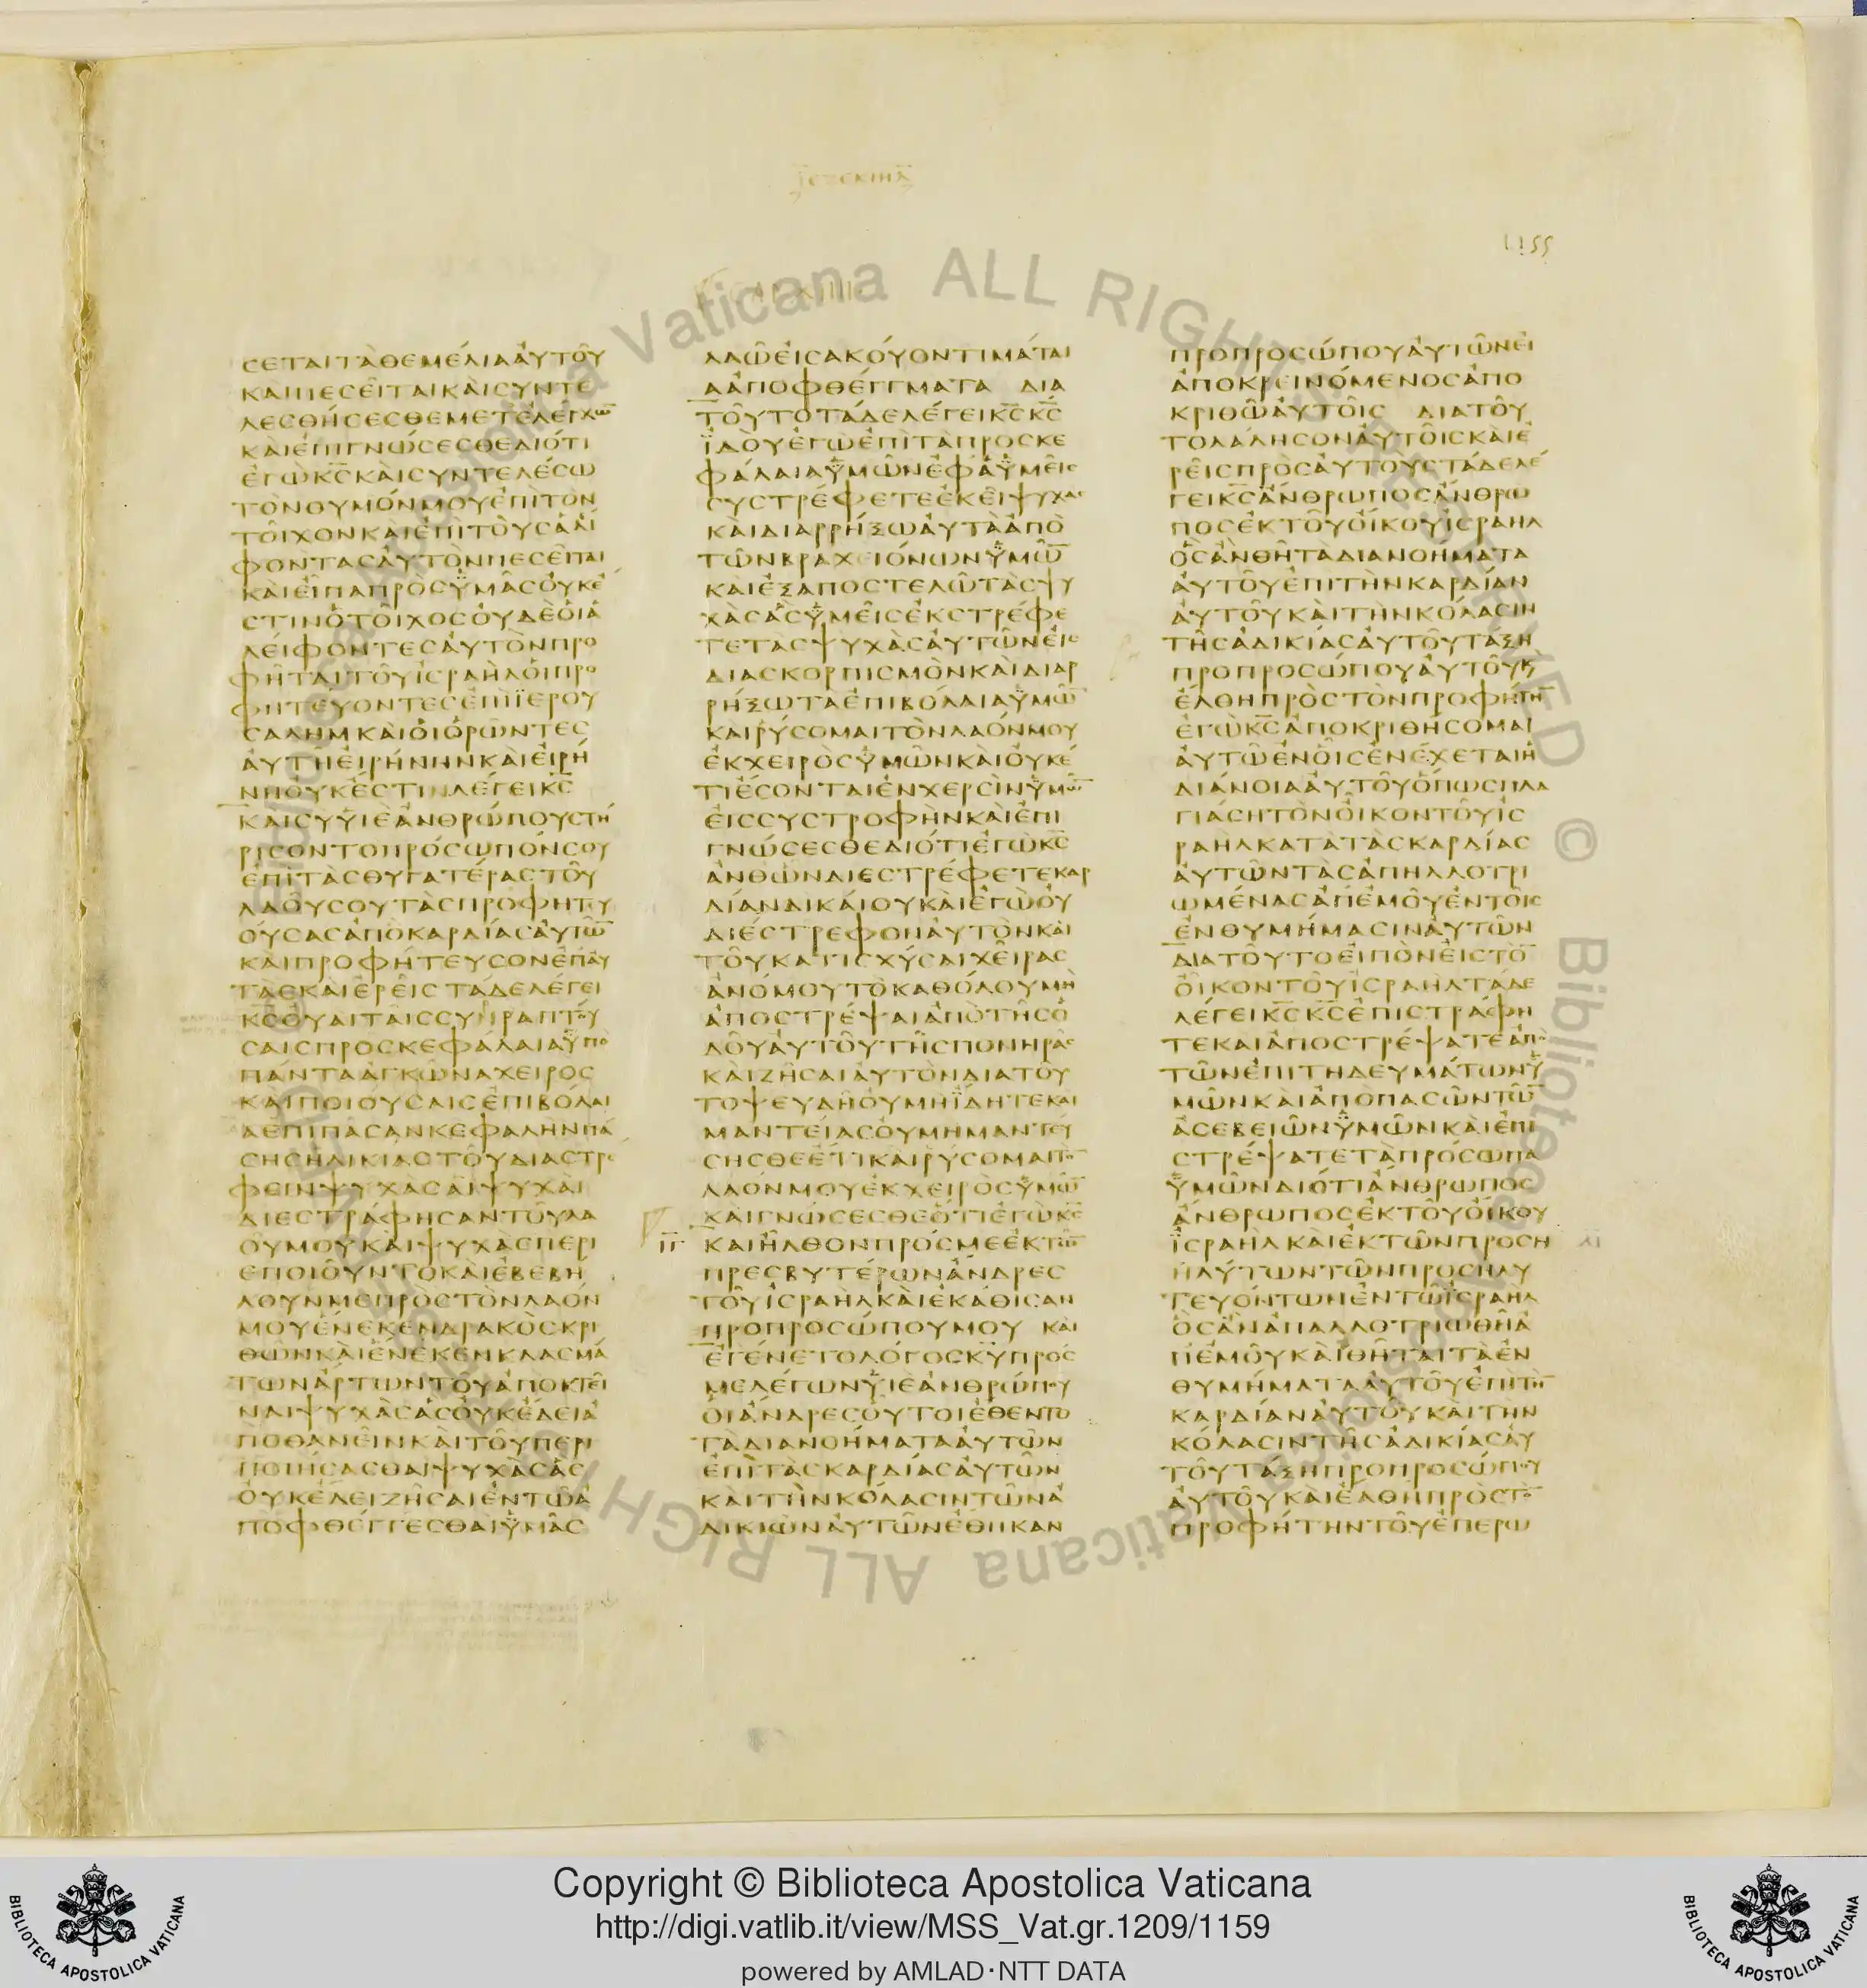 ΙΕΖΕΚΙΗΛ
1155
ϹΕΤΑΙΤᾺΘΕΜΈΛΙΑΑΥ̓ΤΟΥ͂
ΚΑΙΠΕϹΕΙ͂ΤΑΙΚΑῚϹΥΝΤΕ
ΛΕϹΘΉϹΕϹΘΕΜΕΤἘΛΈΓΧΩ̅
ΚΑῚἘΠΙΓΝΏϹΕϹΘΕΔΙΌΤΙ
ΕΓῺΚ̅Ϲ̅ΚΑῚϹΥΝΤΕΛΈϹΩ
ΤῸΝΘΥΜΌΝΜΟΥΕΠΙΤῸΝ
ΤΟΙ͂ΧΟΝΚΑῚἘΠΙΤΟΥϹΑΛΙ
ΦΟΝΤΑϹΑΥ̓ΤῸΝΠΕϹΕΙ͂ΤΑΙ
ΚΑῚΕΙ͂ΠΑΠΡῸϹΫΜΑ͂ϹΟΥΚΈ
ϹΤΙΝὉΤΟΙ͂ΧΟϹΟΥ̓ΔῈΟΙΑ
ΛΕΊΦΟΝΤΕϹΑΥ̓ΤῸΝΠΡΟ
ΦΗ͂ΤΑΙΤΟΥ͂ΙϹΡΑΗΛΟΙΠΡΟ
ΦΗΤΕΎΟΝΤΕϹΕΠΙΪΕΡΟΥ
ϹΑΛΗΜΚΑῚΟΙὉΡΩ͂ΝΤΕϹ
ΑΥ̓ΤΗ͂ΕΙΡΉΝΗΝΚΑῚΕΙΡΉ
ΝΗΟΥ̓ΚΈϹΤΙΝΛΈΓΕΙΚ̅Ϲ̅
ΚΑΙϹΥὙΙΕΑΝΘΡΏΠΟΥϹΤΉ
ΡΙϹΟΝΤΟΠΡΌϹΩΠΌΝϹΟΥ
ΕΠῚΤᾺϹΘΥΓΑΤΈΡΑϹΤΟΥ͂
ΛΑΟΥ͂ϹΟΥΤᾺϹΠΡΟΦΗΤΕΥ
ΟΎϹΑϹΑΠῸΚΑΡΔΊΑϹΑΥΤΩ̅
ΚΑΙΠΡΟΦΉΤΕΥϹΟΝΕΠΑΥ
ΤᾺϹΚΑΙΕΡΕΙ͂ϹΤΑΔΕΛΈΓΕΙ
Κ̅Ϲ̅ΟΥΑΙΤΑΙ͂ϹϹΥΝΡΑΠΤΟΥ
ϹΑΙϹΠΡΟϹΚΕΦΆΛΑΙΑΫΠΟ
ΠΆΝΤΑΑΓΚΩ͂ΝΑΧΕΙΡΟϹ
ΚΑΙΠΟΙΟΥϹΑΙϹΕΠΙΒΌΛΑΙ
ΑΕΠΙΠΑϹΑΝΚΕΦΑΛΗΝΠΑ
ϹΗϹΗΛΙΚΙΑϹΤΟΥΔΙΑϹΤΡΕ
ΦΕΙΝΨΥΧΑϹΑΙΨΥΧΑΙ
ΔΙΕϹΤΡΆΦΗϹΑΝΤΟΥ͂ΛΑ
ΟΥ͂ΜΟΥΚΑῚΨΥΧᾺϹΠΕΡΙ
ΕΠΟΙΟΥ͂ΝΤΟΚΑῚΕΒΕΒΉ
ΛΟΥΝΜΕΠΡῸϹΤῸΝΛΑΌΝ
ΜΟΥΈΝΕΚΕΝΔΡΑΚῸϹΚΡΙ
ΘΩΝΚΑῚΈΝΕΚΕΝΚΛΑϹΜΆ
ΤΩΝΆΡΤΩΝΤΟΥ͂ΑΠΟΚΤΕΙ͂
ΝΑΙΨΥΧᾺϹΑϹΟΥΚΈΔΕΙΑ
ΠΟΘΑΝΕΙ͂ΝΚΑῚΤΟΥ͂ΠΕΡΙ
ΠΟΙΗϹΑϹΘΑΙΨΥΧᾺϹΑϹ
ΟΥΚΈΔΕΙΖΗ͂ϹΑΙΕΝΤΩ͂Α
ΠΟΦΘΈΓΓΕϹΘΑΙΫΜΑ͂Ϲ
ΛΑΩ͂ΕΙϹΑΚΟΎΟΝΤΙΜΆΤΑΙ
ΑΑΠΟΦΘΈΓΓΜΑΤΑ ΔΙΑ
ΤΟΥ͂ΤΟΤΆΔΕΛΈΓΕΙΚ̅Ϲ̅Κ̅Ϲ̅
ΪΔΟῪΕΓῺΕΠῚΤᾺΠΡΟϹΚΕ
ΦΆΛΑΙΑΫΜΩ͂ΝΕΦΑΫΜΕΙϹ
ϹΥϹΤΡΈΦΕΤΕΕΚΕΙ͂ΨΥΧΑϹ
ΚΑῚΔΙΑΡΡΉΞΩΑΥΤᾺΑΠῸ
ΤΩ͂ΝΒΡΑΧΕΙΌΝΩΝΫΜΩ̅
ΚΑΙΕΞΑΠΟϹΤΕΛΩ͂ΤᾺϹΨΥ
ΧᾺϹΑϹΫΜΕΙ͂ϹΕΚϹΤΡΈΦΕ
ΤΕΤΑϹΨΥΧᾺϹΑΥΤΩ͂ΝΕΙϹ
ΔΙΑϹΚΟΡΠΙϹΜῸΝΚΑῚΔΙΑΡ
ΡΉΞΩΤΑΕΠΙΒΌΛΑΙΑΫΜΩ̅
ΚΑΙΡΎϹΟΜΑΙΤῸΝΛΑΌΝΜΟΥ
ΕΚΧΕΙΡῸϹΫΜΩ͂ΝΚΑΙΟΥΚΈ
ΤΙΕϹΟΝΤΑΙΕΝΧΕΡϹῚΝΫΜΩ̅
ΕΙϹϹΥϹΤΡΟΦῊΝΚΑῚΕΠΙ
ΓΝΏϹΕϹΘΕΔΙΌΤΙΕΓῺΚ̅Ϲ̅
ΑΝΘΩΝΔΙΕϹΤΡΈΦΕΤΕΚΑΡ
ΔΊΑΝΔΙΚΑΊΟΥΚΑῚΕΓῺΟΥ
ΔΙΈϹΤΡΕΦΟΝΑΥΤῸΝΚΑΙ
ΤΟΥ͂ΚΑΤΙϹΧΎϹΑΙΧΕΙ͂ΡΑϹ
ΑΝΌΜΟΥΤῸΚΑΘΌΛΟΥΜΗ
ΑΠΟϹΤΡΈΨΑΙΑΠῸΤΗ͂ϹΟ
ΔΟΥ͂ΑΥΤΟΥ͂ΤΗ͂ϹΠΟΝΗΡΑϹ
ΚΑῚΖΗ͂ϹΑΙΑΥΤῸΝΔΙΑΤΟΥ
ΤΟΨΕΥΔΗΟΥΜΗΪΔΗΤΕΚΑΙ
ΜΑΝΤΕΙΑϹΟΥΜΗΜΑΝΤΕΥ
ϹΗϹΘΕΕΤΙΚΑΙΡΎϹΟΜΑΙΤΟ̅
ΛΑΌΝΜΟΥΕΚΧΕΙΡῸϹΫΜΩ̅
ΚΑΙΓΝΏϹΕϹΘΕΟΤΙΕΓῺΚ̅Ϲ̅
ΙΓ ΚΑΙΗ͂ΛΘΟΝΠΡΌϹΜΕΕΚΤΩ̅
ΠΡΕϹΒΥΤΈΡΩΝΆΝΔΡΕϹ
ΤΟΥ͂ΙϹΡΑΗΛΚΑῚΕΚΆΘΙϹΑΝ
ΠΡΟΠΡΟϹΏΠΟΥΜΟΥ ΚΑΙ
ΕΓΈΝΕΤΟΛΌΓΟϹΚ̅Υ̅ΠΡΟϹ
ΜΕΛΈΓΩΝΥΙΕΑΝΘΡΏΠΟΥ
ΟΙΆΝΔΡΕϹΟΥΤΟΙΈΘΕΝΤΟ
ΤᾺΔΙΑΝΟΉΜΑΤΑΑΥΤΩ͂Ν
ΕΠῚΤᾺϹΚΑΡΔΊΑϹΑΥΤΩ͂Ν
ΚΑῚΤῊΝΚΌΛΑϹΙΝΤΩ͂ΝΑ
ΔΙΚΙΩ͂ΝΑΥΤΩ͂ΝΈΘΗΚΑΝ
ΠΡΟΠΡΟϹΏΠΟΥΑΥΤΩ͂ΝΕΙ
ΑΠΟΚΡΕΙΝΌΜΕΝΟϹΑΠΟ
ΚΡΙΘΩ͂ΑΥΤΟΙ͂Ϲ ΔΙΑΤΟΥ͂
ΤΟΛΆΛΗϹΟΝΑΥΤΟΙ͂ϹΚΑῚΕ
ΡΕΙ͂ϹΠΡῸϹΑΥΤΟῪϹΤΆΔΕΛΈ
ΓΕΙΚ̅Ϲ̅ΆΝΘΡΩΠΟϹΆΝΘΡΩ
ΠΟϹΕΚΤΟΥ͂ΟΊΚΟΥΙϹΡΑΗΛ
ὋϹᾺΝΘΗ͂ΤᾺΔΙΑΝΟΉΜΑΤΑ
ΑΥΤΟΥ͂ΕΠΙΤῊΝΚΑΡΔΊΑΝ
ΑΥΤΟΥ͂ΚΑῚΤῊΝΚΌΛΑϹΙΝ
ΤΗ͂ϹΑΔΙΚΊΑϹΑΥΤΟΥ͂ΤΆΞΗ
ΠΡΟΠΡΟϹΏΠΟΥΑΥΤΟΥ͂Κ
ΈΛΘΗΠΡῸϹΤῸΝΠΡΟΦΉΤΗ̅
ΕΓῺΚ̅Ϲ̅ΑΠΟΚΡΙΘΉϹΟΜΑΙ
ΑΥΤΩ͂ΕΝΟΙ͂ϹΕΝΈΧΕΤΑΙΗ
ΔΙΆΝΟΙΑΑΥΤΟΥ͂ΟΠΩϹΠΛΑ
ΓΙΆϹΗΤῸΝΟΙ͂ΚΟΝΤΟΥ͂ΙϹ
ΡΑΗΛΚΑΤᾺΤᾺϹΚΑΡΔΊΑϹ
ΑΥΤΩ͂ΝΤᾺϹΑΠΗΛΛΟΤΡΙ
ΩΜΈΝΑϹΑΠΕΜΟΥ͂ΕΝΤΟΙ͂Ϲ
ΕΝΘΥΜΉΜΑϹΙΝΑΥΤΩ͂Ν
ΔΙΑΤΟΥΤΟΕΙΠῸΝΕΙϹΤΟ̅
ΟΙ͂ΚΟΝΤΟΥ͂ΙϹΡΑΗΛΤΆΔΕ
ΛΈΓΕΙΚ̅Ϲ̅Κ̅Ϲ̅ΕΠΙϹΤΡΆΦΗ
ΤΕΚΑΙΑΠΟϹΤΡΈΨΑΤΕΑΠΟ
ΤΩ͂ΝΕΠΙΤΗΔΕΥΜΆΤΩΝΫ
ΜΩ͂ΝΚΑῚΑΠῸΠΑϹΩ͂ΝΤΩ̅
ΑϹΕΒΕΙΩ͂ΝΫΜΩ͂ΝΚΑῚΕΠΙ
ϹΤΡΈΨΑΤΕΤᾺΠΡΌϹΩΠΑ
ΫΜΩ͂ΝΔΙΌΤΙΆΝΘΡΩΠΟϹ
ΆΝΘΡΩΠΟϹΕΚΤΟΥ͂ΟΊΚΟΥ
ΪϹΡΑΗΛΚΑῚΕΚΤΩ͂ΝΠΡΟϹΗ
ΗΛΎΤΩΝΤΩ͂ΝΠΡΟϹΗΛΥ
ΤΕΥΌΝΤΩΝΕΝΤΩΪϹΡΑΗΛ
ὋϹΑΝΑΠΑΛΛΟΤΡΙΩΘΗ͂Α
ΠΕΜΟΥ͂ΚΑῚΘΗ͂ΤΑΙΤᾺΕΝ
ΘΥΜΉΜΑΤΑΑΥΤΟΥ͂ΕΠΙΤῊ̅
ΚΑΡΔΊΑΝΑΥΤΟΥ͂ΚΑῚΤΗΝ
ΚΌΛΑϹΙΝΤΗ͂ϹΑΔΙΚΊΑϹΑΥ
ΤΟΥ͂ΤΆΞΗΠΡΟΠΡΟϹΏΠΟΥ
ΑΥΤΟΥ͂ΚΑῚΕΛΘΗΠΡῸϹΤΟ̅
ΠΡΟΦΉΤΗΝΤΟΥ͂ΕΠΕΡΩ
Copyright © Biblioteca Apostolica Vaticana
http://digi.vatlib.it/view/MSS_Vat.gr.1209/1159
powered by AMLAD·NTT DATA
BIBLIOTECA APOSTOLICA VATICANA
BIBLIOTECA APOSTOLICA VATICANA